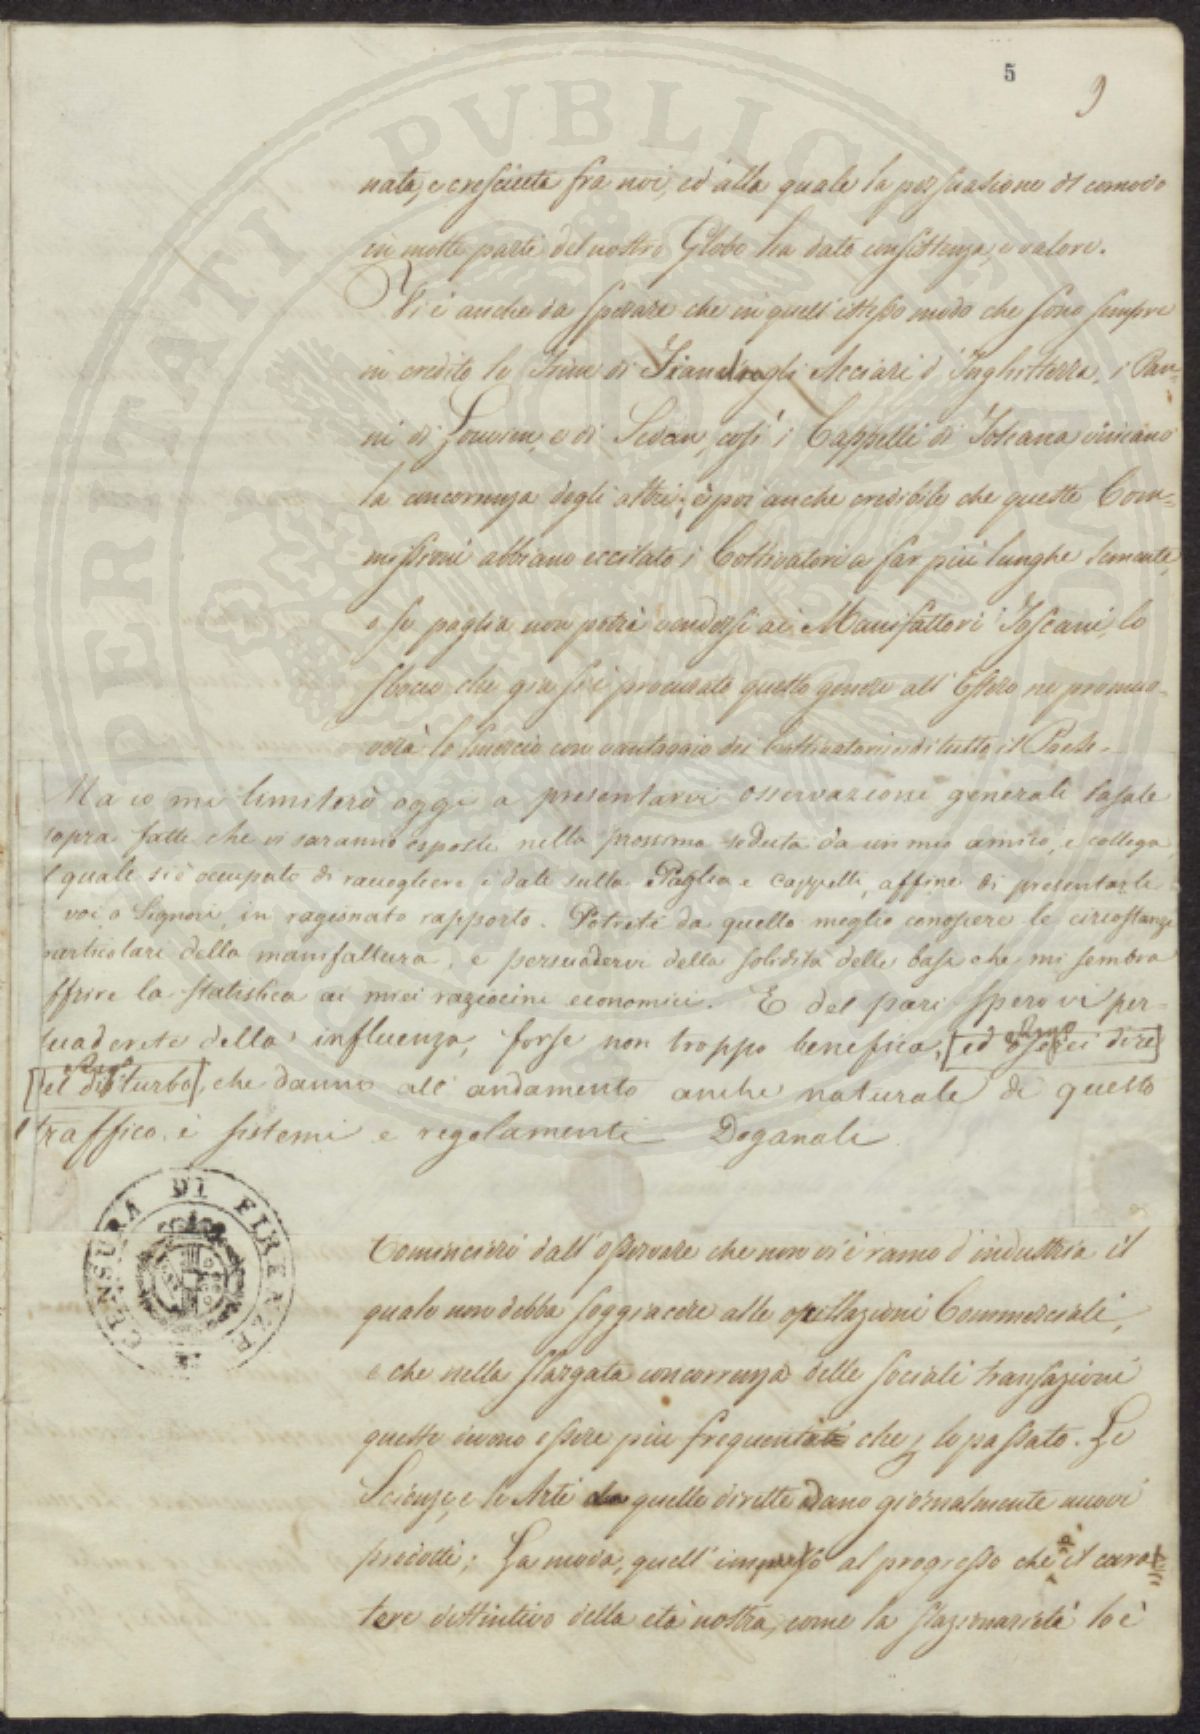 5
9
nata, e cresciuta fra noi, ed alla quale la persuasione di comodo
in molte parti del nostro Globo ha dato consistenza, e valore.
Vi è anche da sperare che in quell' istesso modo che sono sempre
in credito le Trine di Fiandra gli Acciari d' Inghilterra, i Pan-
ni di Louvier, e di Sedan, così i Cappelli di Toscana vincano
la concorrenza degli altri; è poi anche credibile che queste Com-
missioni abbiano eccitato i Coltivatori a far più lunghe semente,
e se paglia non potrà vendersi ai Manifattori Toscani, lo
sbocco che già si è procurato questo genere all' Estero ne promuo-
verà lo smercio con vantaggio dei Coltivatori e di tutto il Paese.
Ma io mi limiterò oggi a presentarvi osservazioni generali basate
sopra fatti che vi saranno esposti nella prossima seduta da un mio amico, e collega,
il quale si è occupato di raccogliere i dati sulla Paglia e Cappelli, affine di presentarli
voi o Signori, in ragionato rapporto. Potrete da quello meglio conoscere le circostanze
particolari della manifattura, e persuadervi della solidità delle basi che mi sembra
offrire la statistica ai miei raziocini economici. E del pari spero vi per-
suaderete della influenza, forse non troppo benefica, [ed oserei dire]
[el disturbo], che danno all' andamento anche naturale di questo
traffico, i sistemi e regolamenti Doganali.
CENSURA DI FIRENZE
Comincierò dall' osservare che non vi è ramo d' industria il
quale non debba soggiacere alle oscillazioni Commerciali,
e che nella slargata concorrenza delle sociali transazioni
queste devono essere più frequenti che lo passato. Le
Scienze, e le Arti da quelle dirette dano giornalmente nuovi
prodotti; La moda, quell' impulso al progresso che è il carat-
tere distintivo della età nostra, come la stazionarietà lo è
PERITATI PVBLICAE